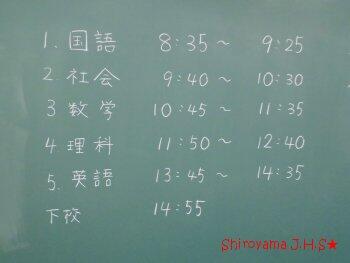 1. 国語 8:35～ 9:25
2. 社会 9:40～ 10:30
3 数学 10:45～ 11:35
4. 理科 11:50～ 12:40
5. 英語 13:45～ 14:35
下校 14:55
Shiroyama J.H.S★